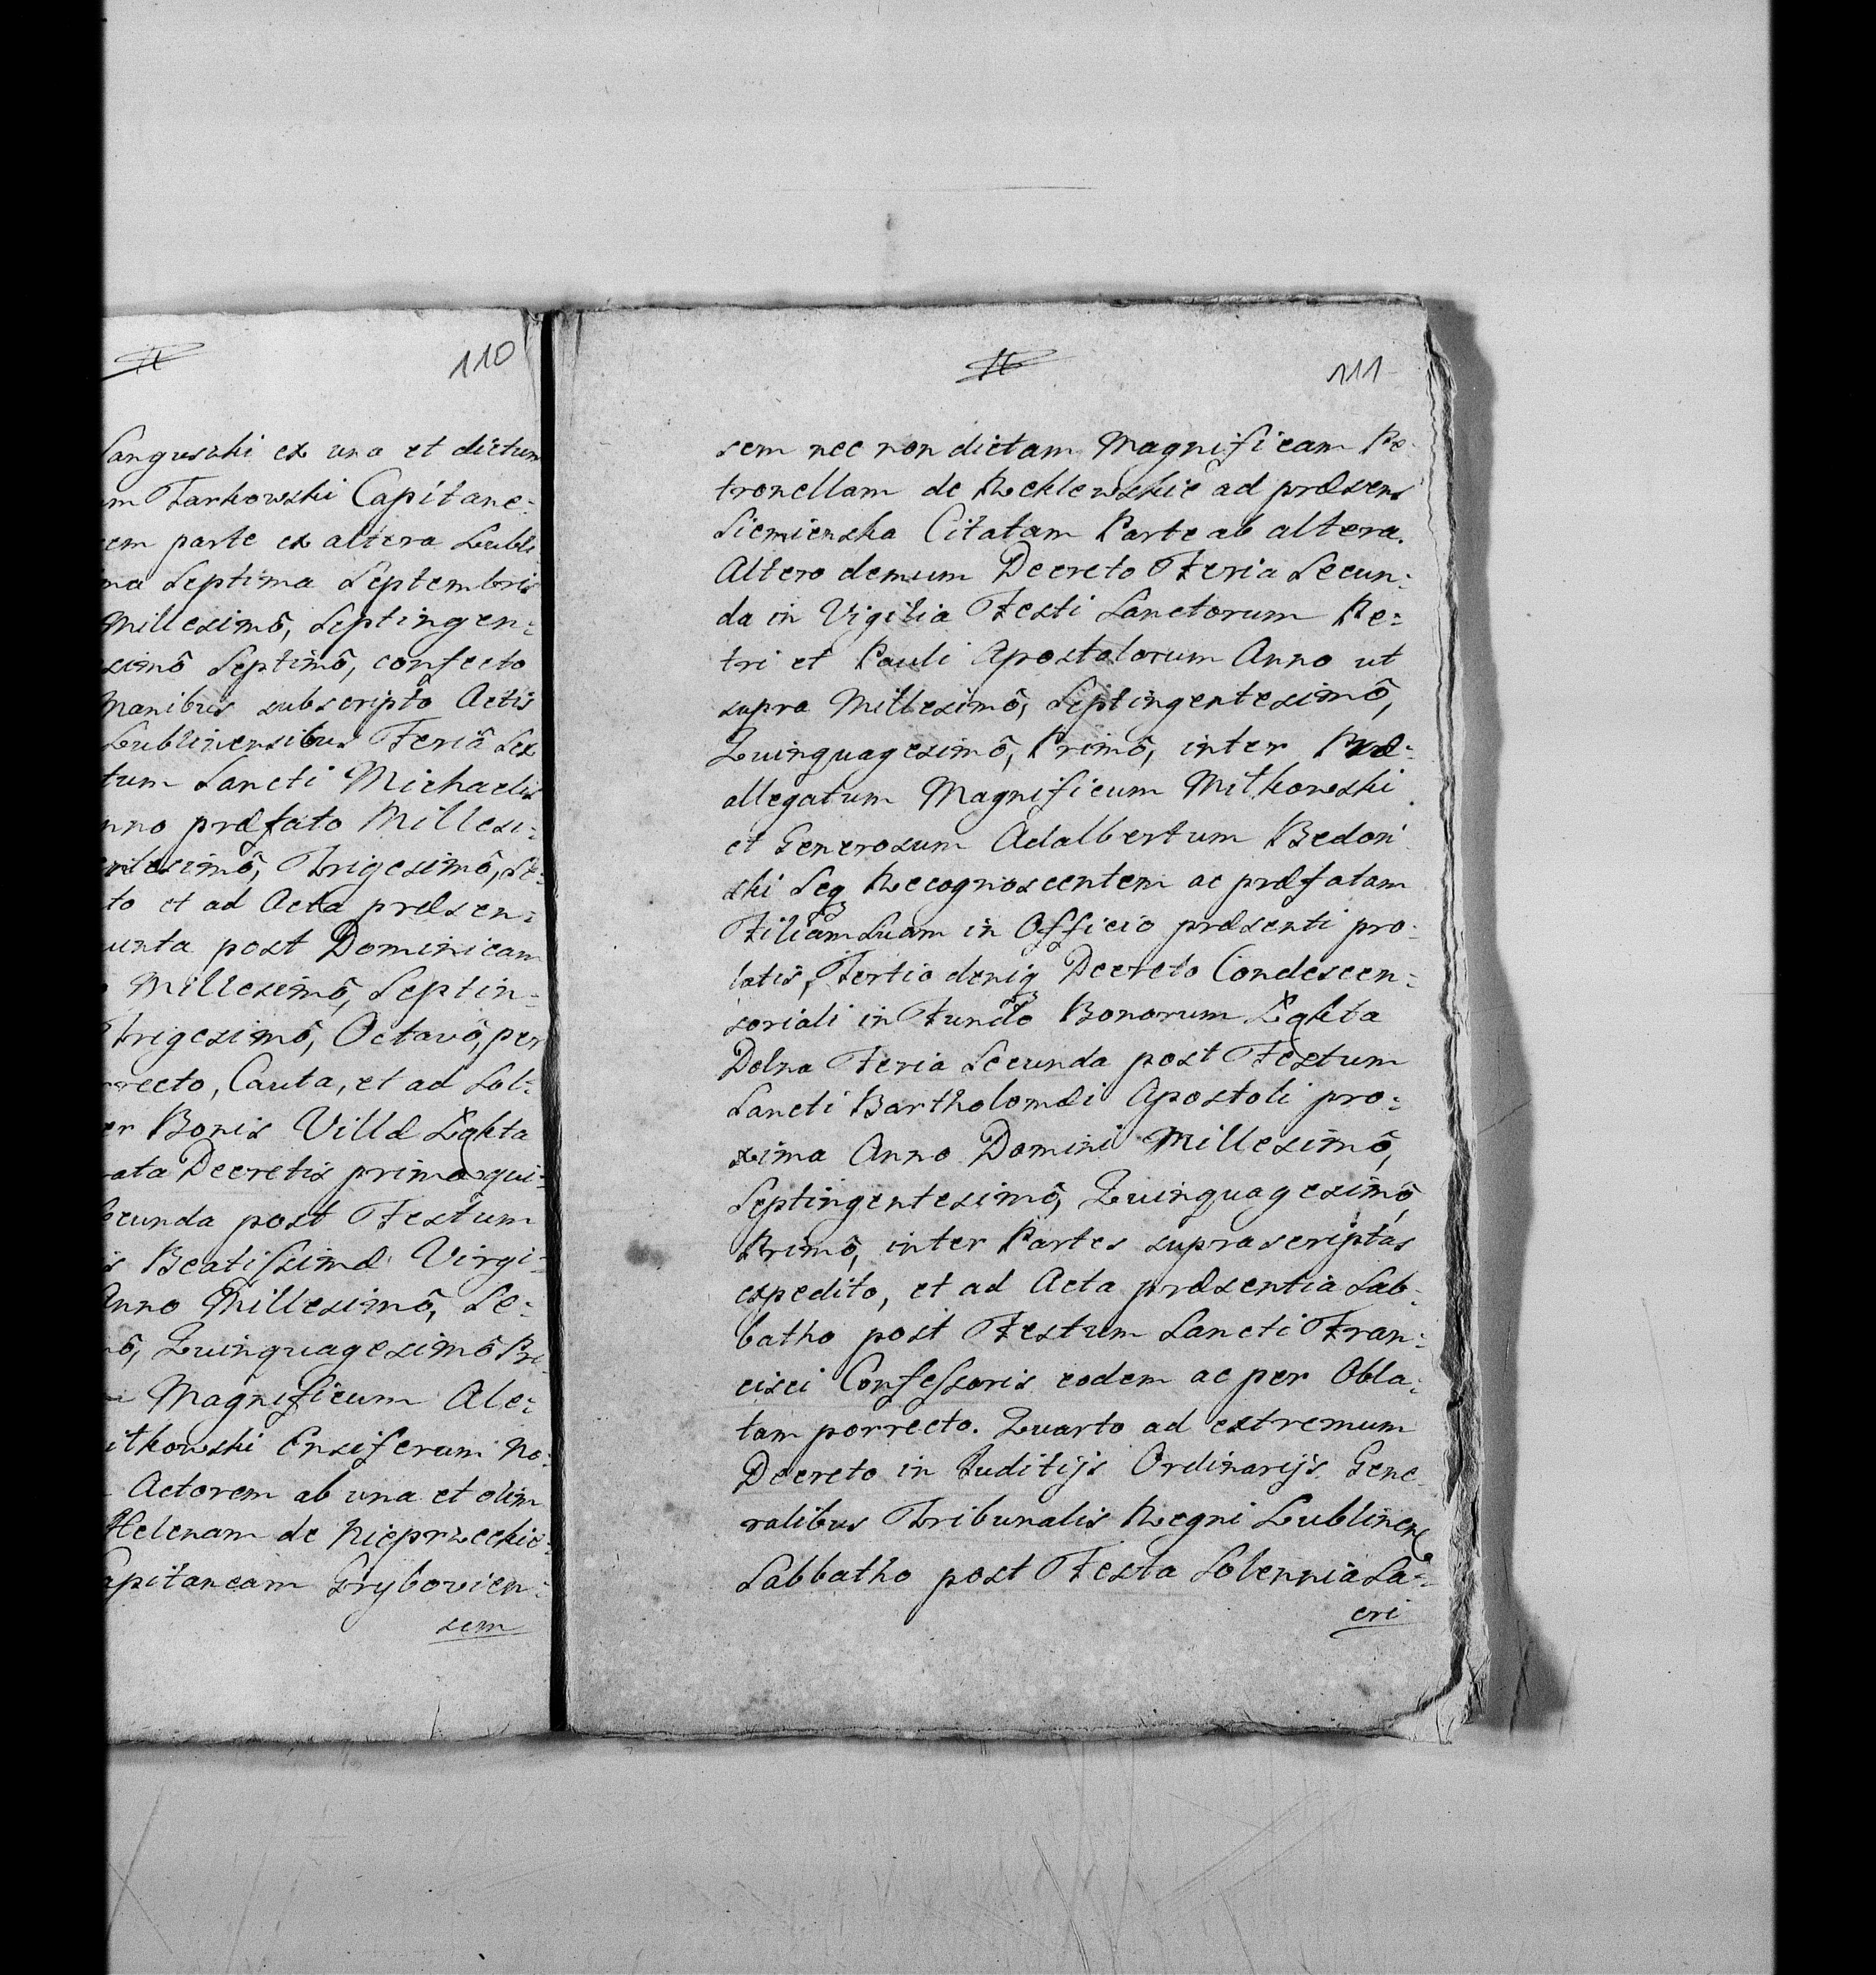 110
Sanguszki ex una et dictum
m Tarkowski Capitane:
em parte ex altera Lubli
na Septima Septembris
Millesimô, Septingen:
simô Septimô, confecto
Manibus subscripto Actis
Lublinensibus Feriâ Sex
tum Sancti Michaelis
nno præfato Millesi:
tesimô, Trigesimô, Se:
to et ad Acta præsen:
unta post Dominicam
Millesimô, Septin:
Trigesimô, Octavô, per
recto, Cauta, et ad Sol:
er Bonis Villæ Łąkta
ata Decretis primo qui:
cunda post Festum
is Beatissimæ Virgi:
Anno Millesimô, Se:
ô, Quinquagesimô Pri
Magnificum Ale:
itkowski Ensiferum No:
Actorem ab una et olim
Helenam de Nieprzeckie:
apitaneam Grybovien:
sem
111
sem nec non dictam Magnificam Pe:
tronellam de Reklewskie ad præsens
Siemienska Citatam Parte ab altera.
Altero demum Decreto Feria Secun:
da in Vigilia Festi Sanctorum Pe:
tri et Pauli Apostolorum Anno ut
supra Millesimô, Septingentesimô,
Quinquagesimô, Primô, inter Præ:
allegatum Magnificum Mitkowski
et Generosum Adalbertum Bedon
ski Seq Recognoscentem ac præfatam
Filiam Suam in Officio præsenti pro:
latis, Tertio deniq Decreto Condescen:
soriali in Fundo Bonorum Łąkta
Dolna Feria Secunda post Festum
Sancti Bartholomæi Apostoli pro:
xima Anno Domini Millesimô,
Septingentesimô, Quinquagesimô
Primô, inter Partes suprascriptas
expedito, et ad Acta præsentia Sab:
batho post Festum Sancti Fran:
cisci Confessoris eodem ac per Obla:
tam porrecto. Quarto ad extremum
Decreto in Juditijs Ordinarijs Gene
ralibus Tribunalis Regni Lublinen
Sabbatho post Festa Solennia Sa:
cri